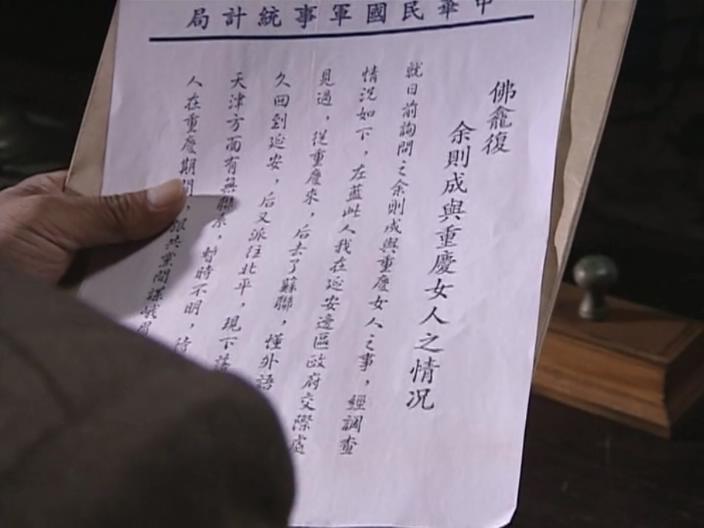 中華民國軍事統計局
佛龕復
余則成與重慶女人之情況
就日前詢問之余則成與重慶女人之事，經調查
情况如下，左蓝此人我在延安邊區政府交際處
見過，從重慶來，后去了蘇聯，懂外語
久回到延安，后又派往北平，現下
天津方面有無聯系，暫時不明，待
人在重慶期間，跟共黨間諜